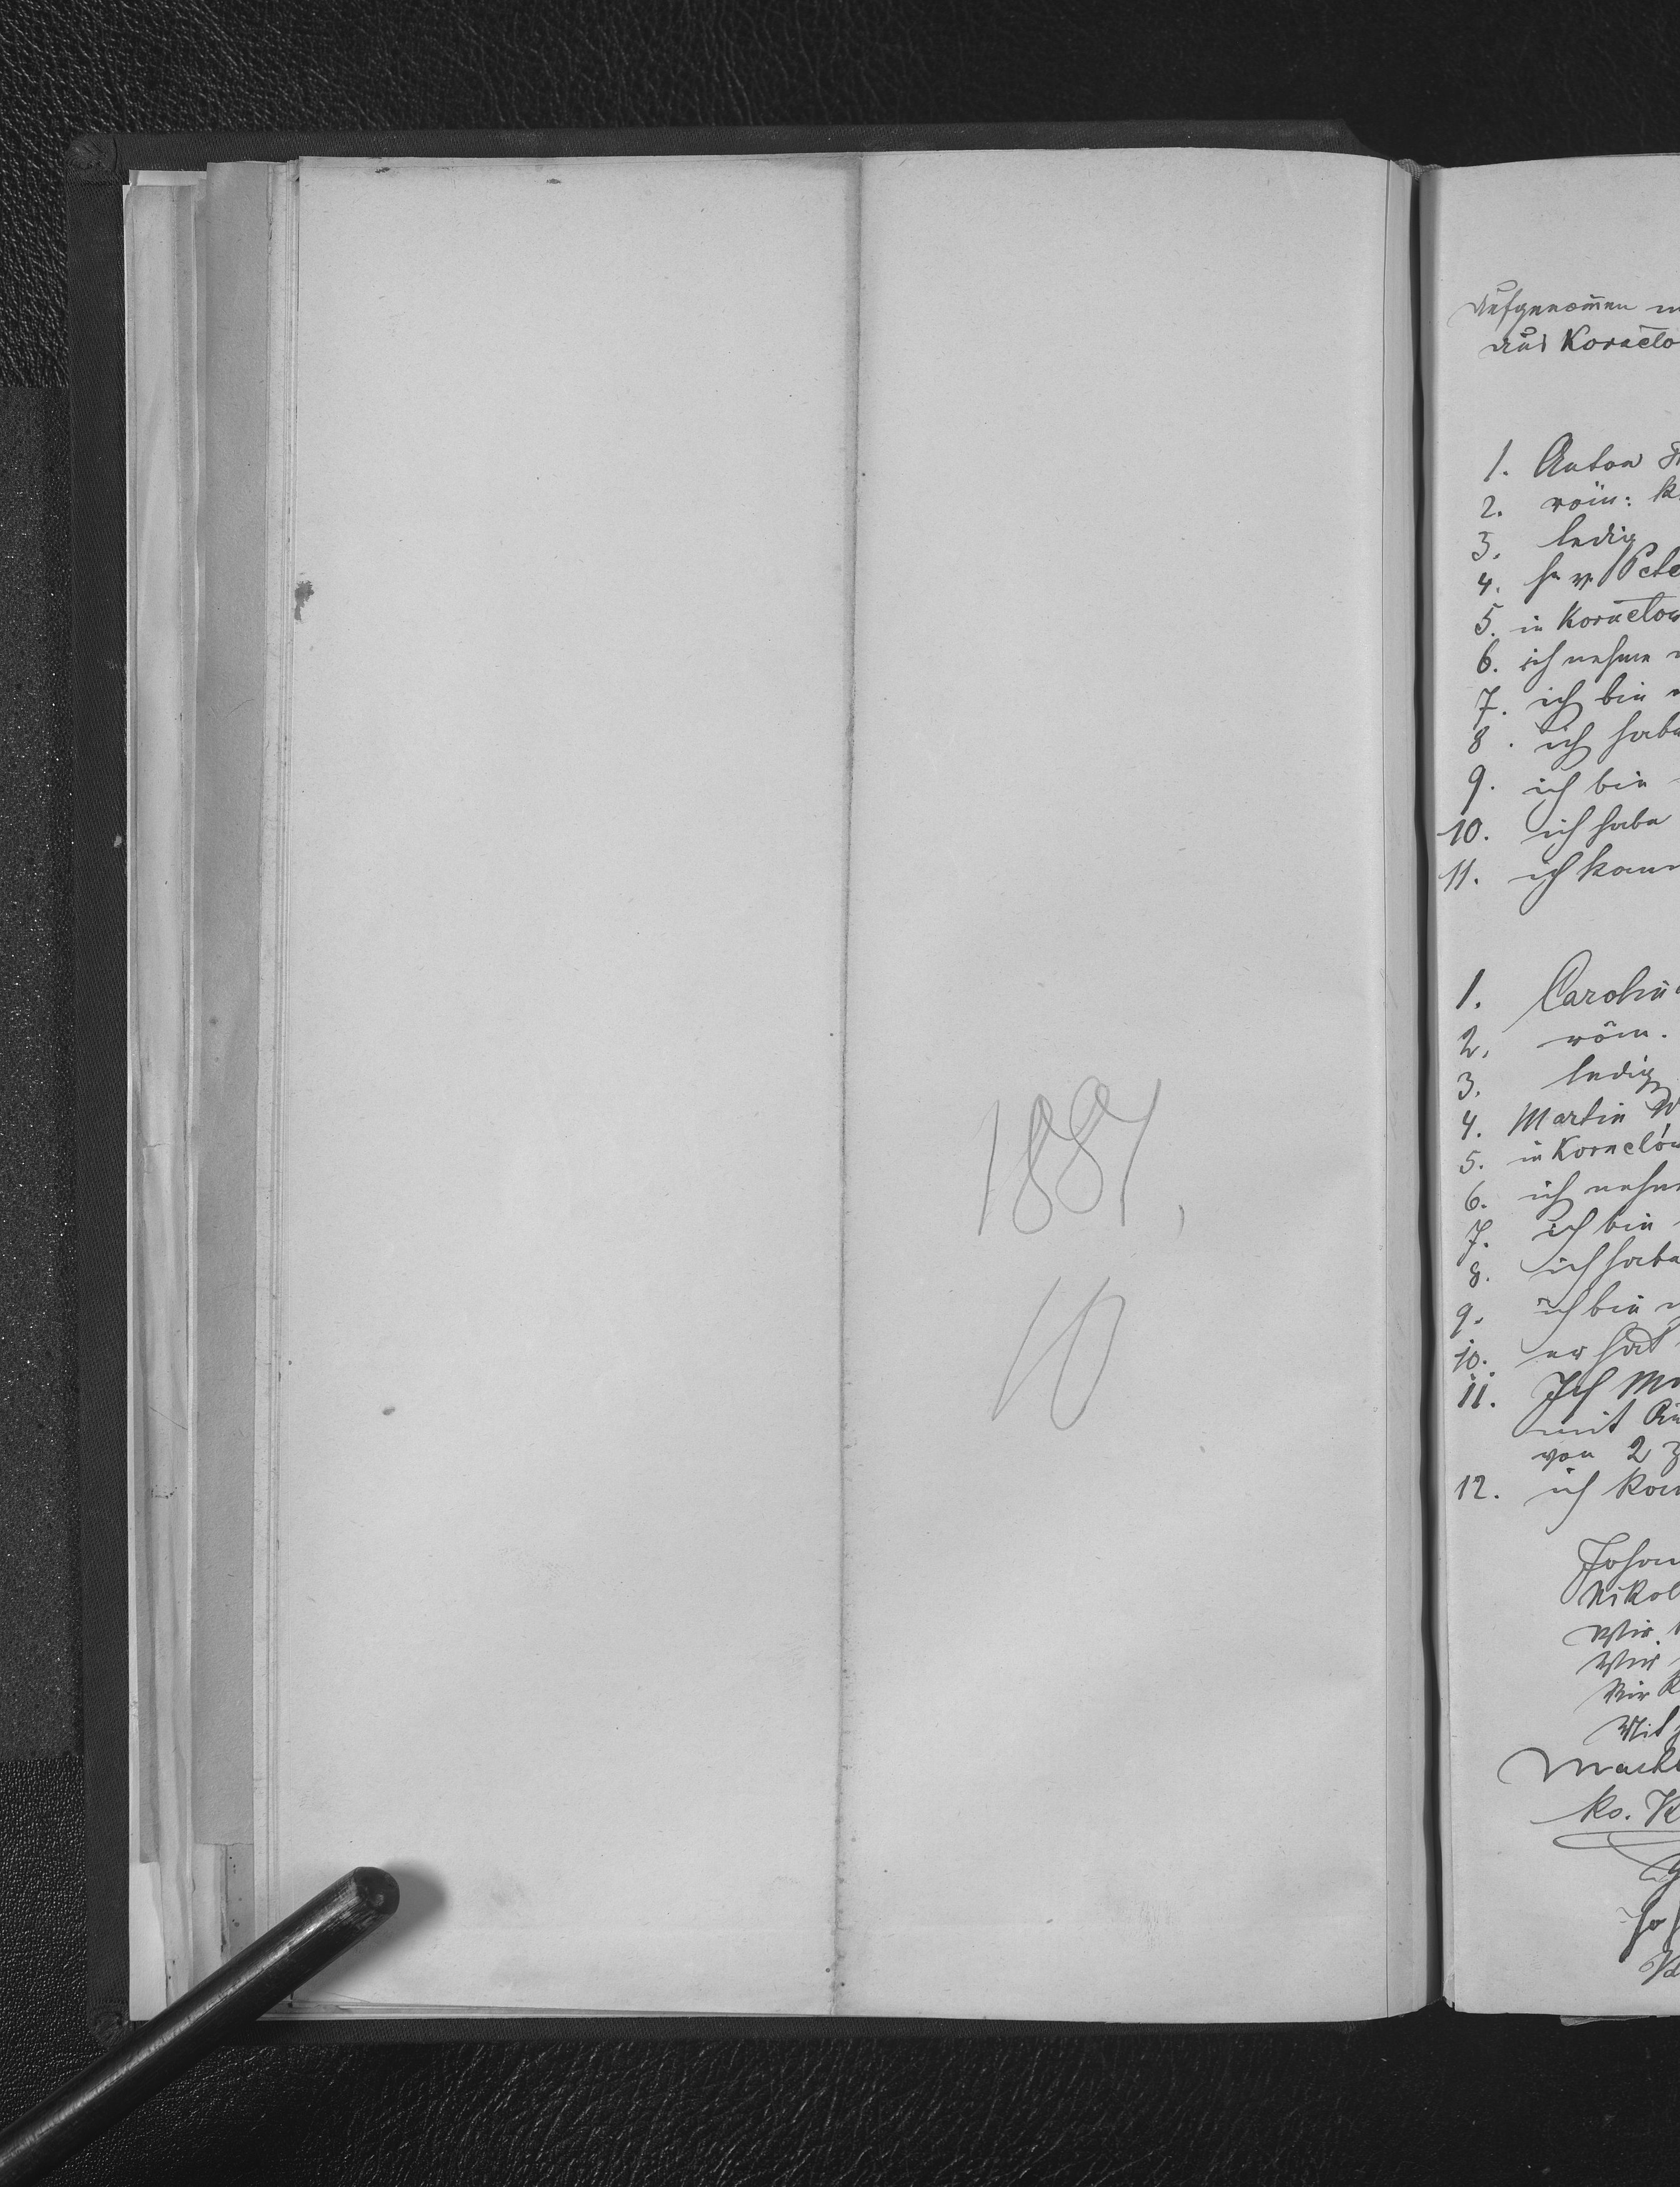 1881.
10
Aufgenom̄en
aus Kornelo
1. Anton
2. röm: k
3. ledig
4. Pete
5. in Kornelow
6. ich nehme
7. ich bin
8. ich habe
9. ich bin
10. ich habe
11. ich kann
1. Carolin
2. röm.
3. ledig
4. Martin W
5. in Kornelów
6. ich nehm
7. ich bin
8. ich habe
9. ich bin
10. er hat
11. Ich
mit
von 2
12. ich kan
Johan
Nikol
Wir
Wir
Wir k
Mit